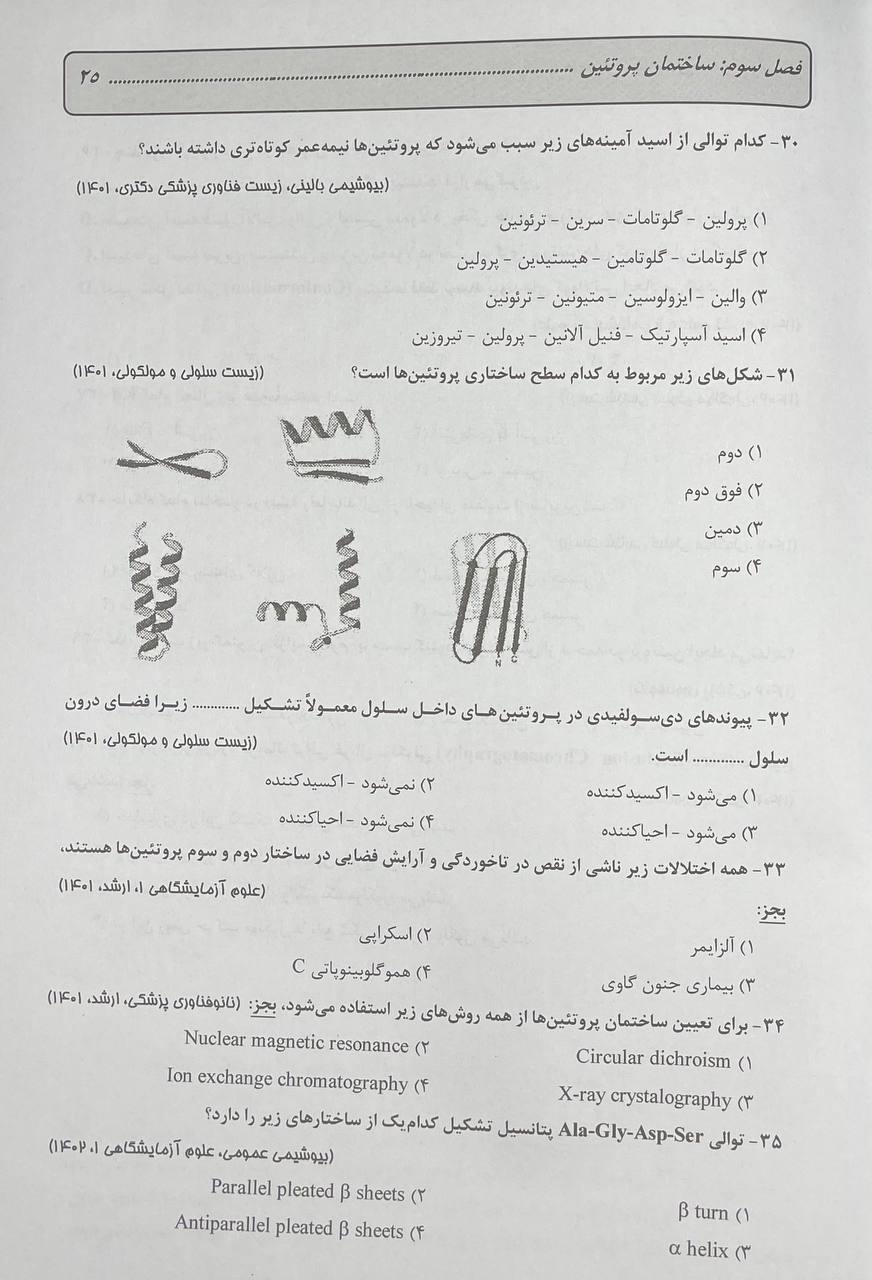 فصل سوم: ساختمان پروتئین .......... ۲۵
۳۰- کدام توالی از اسید آمینه‌های زیر سبب می‌شود که پروتئین‌ها نیمه‌عمر کوتاه‌تری داشته باشند؟
(بیوشیمی بالینی، زیست فناوری پزشکی دکتری، ۱۴۰۱)
۱) پرولین - گلوتامات - سرین - ترئونین
۲) گلوتامات - گلوتامین - هیستیدین - پرولین
۳) والین - ایزولوسین - متیونین - ترئونین
۴) اسید آسپارتیک - فنیل آلانین - پرولین - تیروزین
۳۱- شکل‌های زیر مربوط به کدام سطح ساختاری پروتئین‌ها است؟ (زیست سلولی و مولکولی، ۱۴۰۱)
۱) دوم
۲) فوق دوم
۳) دمین
۴) سوم
N C
۳۲- پیوندهای دی‌سولفیدی در پروتئین‌های داخل سلول معمولاً تشکیل ............ زیرا فضای درون
سلول ............ است. (زیست سلولی و مولکولی، ۱۴۰۱)
۱) می‌شود - اکسیدکننده ۲) نمی‌شود - اکسیدکننده
۳) می‌شود - احیاکننده ۴) نمی‌شود - احیاکننده
۳۳- همه اختلالات زیر ناشی از نقص در تاخوردگی و آرایش فضایی در ساختار دوم و سوم پروتئین‌ها هستند،
بجز: (علوم آزمایشگاهی ۱، ارشد، ۱۴۰۱)
۱) آلزایمر ۲) اسکراپی
۳) بیماری جنون گاوی ۴) هموگلوبینوپاتی C
۳۴- برای تعیین ساختمان پروتئین‌ها از همه روش‌های زیر استفاده می‌شود، بجز: (نانوفناوری پزشکی، ارشد، ۱۴۰۱)
۱) Circular dichroism ۲) Nuclear magnetic resonance
۳) X-ray crystalography ۴) Ion exchange chromatography
۳۵- توالی Ala-Gly-Asp-Ser پتانسیل تشکیل کدام‌یک از ساختارهای زیر را دارد؟
(بیوشیمی عمومی، علوم آزمایشگاهی ۱، ۱۴۰۲)
۱) β turn ۲) Parallel pleated β sheets
۳) α helix ۴) Antiparallel pleated β sheets